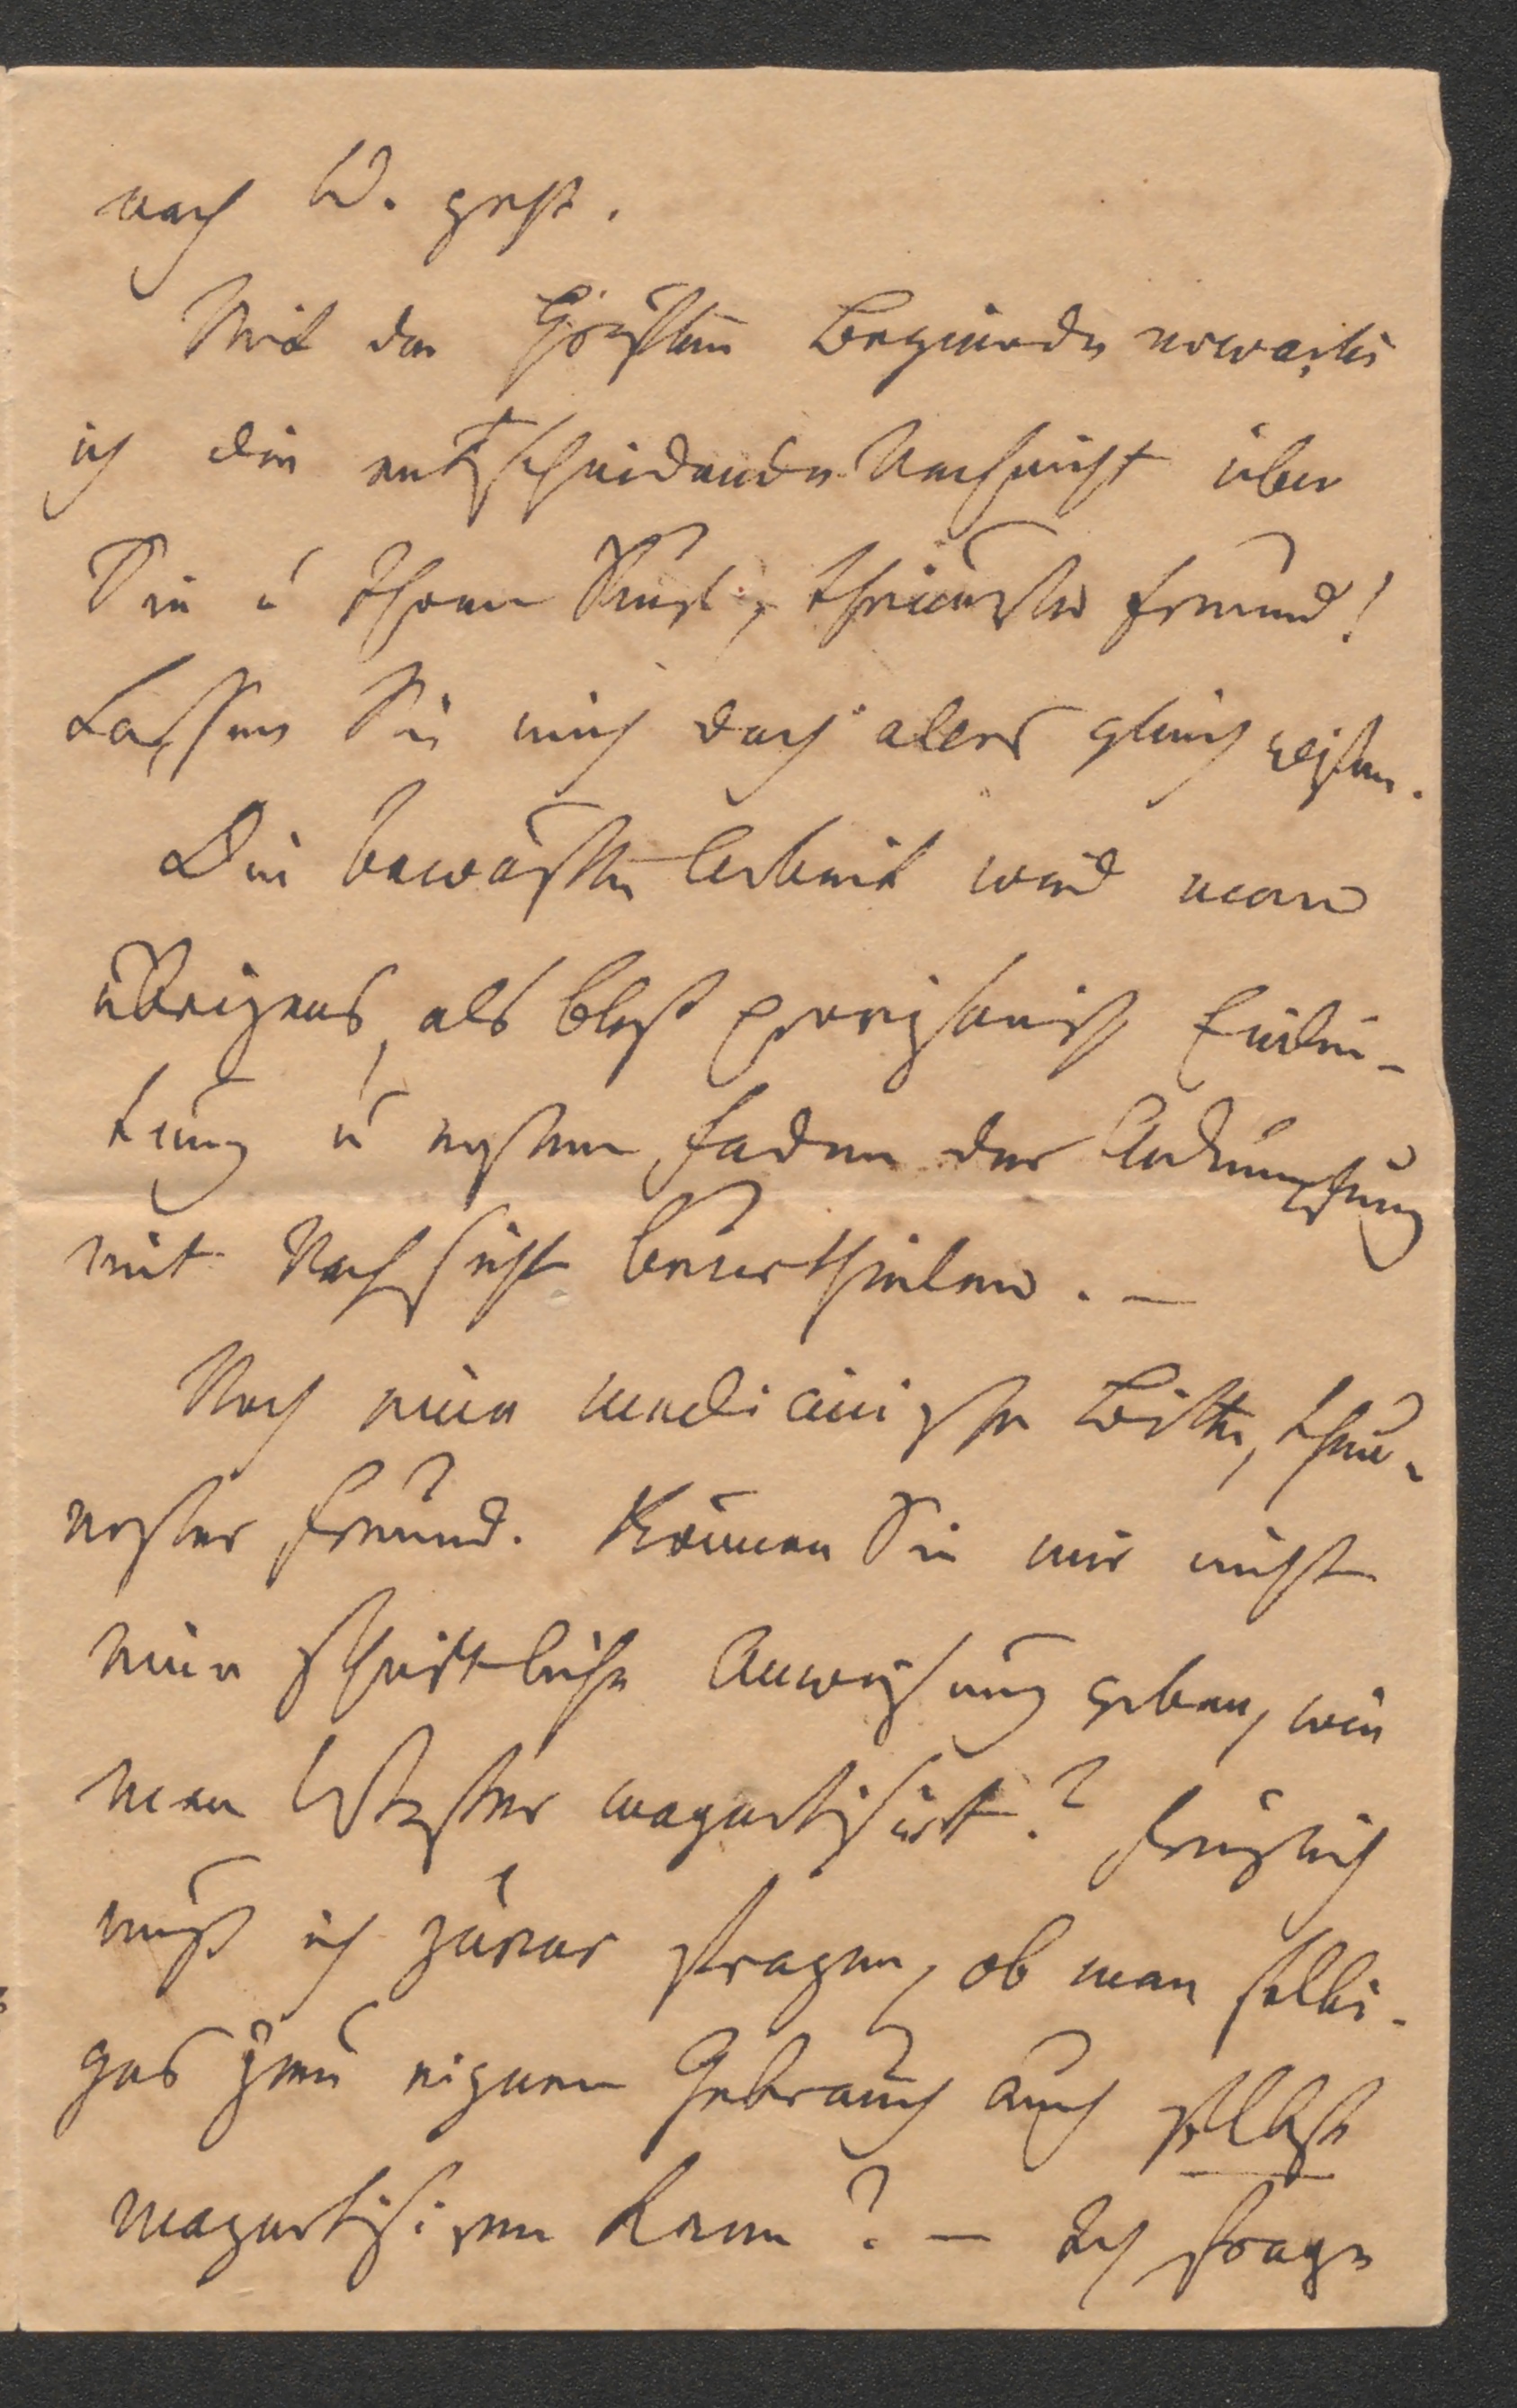 nach W. geht.
Mit der Begierde erwarte
ich die entscheidende Nachricht über
Sie u Ihren theuerster Freund!
Lassen Sie mich doch alles gleich wissen.
Die bewußte Arbeit wird man
übrigens, als bloß provisorisch Einlei-
tung u ersten Faden der Anknüpfung
mit Nachsicht beurtheilen. —
Noch eine medicinische Bitte, theu-
erster Freund. Können Sie mir nicht
eine schriftliche Anweisung geben, wie
man Wasser magnetisirt? Freylich
muß ich zuvor fragen, ob man selbi-
ges zum eignen Gebrauch auch selbst
magnetisiren kann? — Ich frage